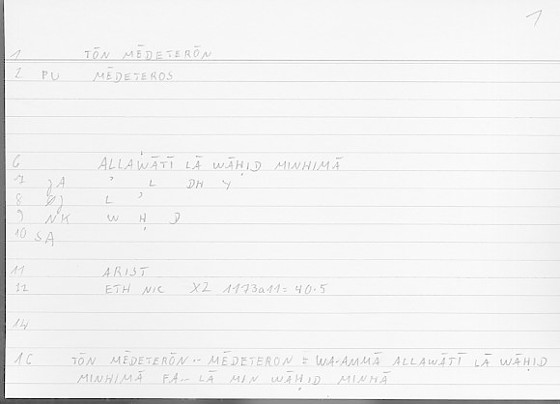 1
1 TŌN MĒDETERŌN
2 PU MĒDETEROS
6 ALLAWĀTĪ LĀ WĀḤID MINHIMĀ
7 JA ʾ L DH Y
8 L ʾ
9 NK W Ḥ D
10 SA
11 ARIST
12 ETH NIC X2 1173a11 = 40.5
14
1C TŌN MĒDETERŌN -- MĒDETERON = WA-AMMĀ ALLAWĀTĪ LĀ WĀḤID
MINHIMĀ FA-LĀ MIN WĀḤID MINHĀ